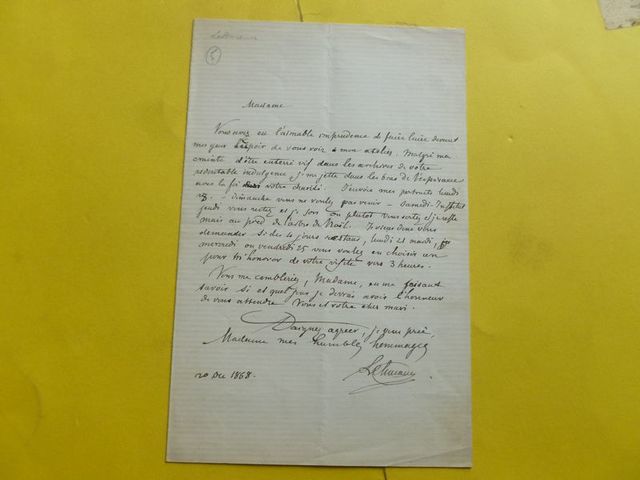 5
Madame
Vous avez eu l'aimable imprudence de faire luire devant
mes yeux l'espoir de vous voir à mon atelier. Malgré ma
crainte d'être enterré vif dans les archives de votre
redoutable indulgence je me jette dans les bras de l'espérance
avec la foi votre charité. J'envoie mes portraits lundi
28. - dimanche vous ne voulez pas venir - Samedi Institut
jeudi vous restez et je sors ou plutôt vous sortez et je reste
mais au pied de l'astre de Noël. Je veux donc vous
demander si des 4 jours restant, lundi 21 mardi,
mercredi ou vendredi 25 vous voulez en choisir un
pour m'honorer de votre visite vers 3 heures.
Vous me combleriez, Madame, en me faisant
savoir si et quel jour je devrais avoir l'honneur
de vous attendre Vous et votre cher mari.
Daignez agréer, je vous prie,
Madame mes humbles hommages
20 Dec 1868.